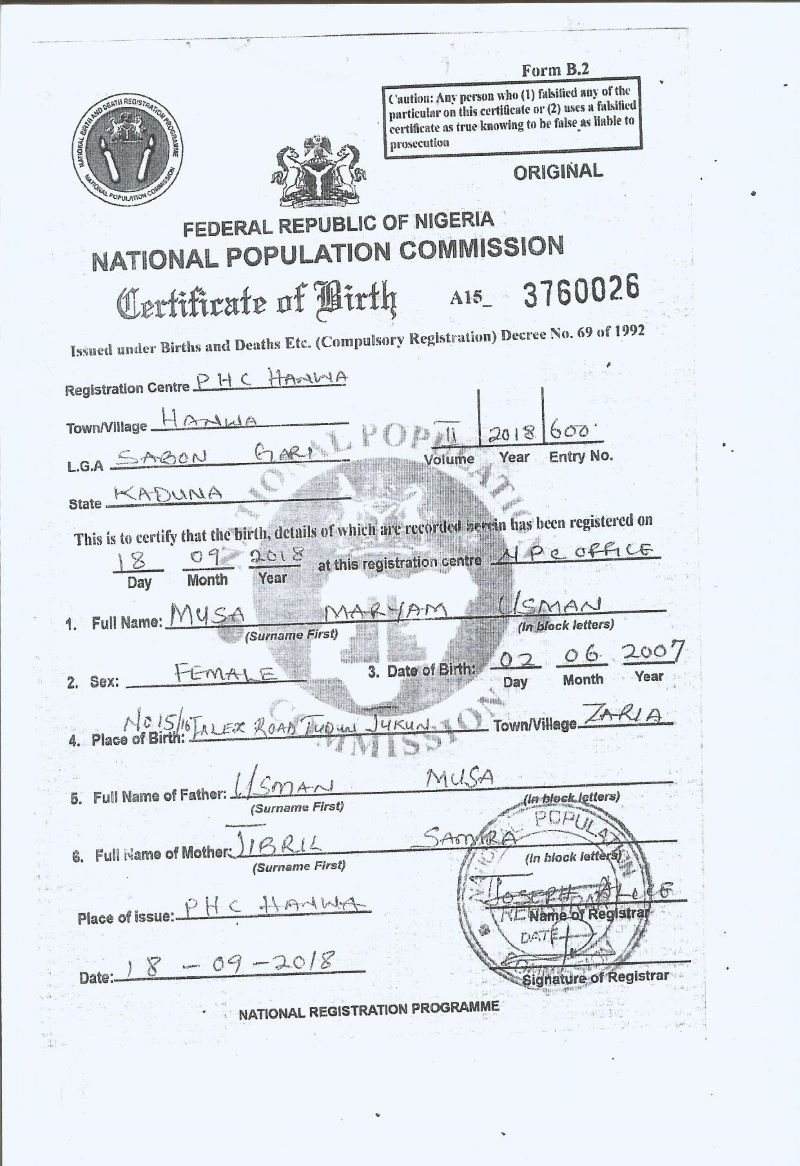 Form B.2
Caution: Any person who (1) falsified any of the
particular on this certificate or (2) uses a falsified
certificate as true knowing to be false as liable to
prosecution
NATIONAL BIRTH AND DEATH REGISTRATION PROGRAMME
NATIONAL POPULATION COMMISSION
ORIGINAL
FEDERAL REPUBLIC OF NIGERIA
NATIONAL POPULATION COMMISSION
Certificate of Birth A15_ 3760026
Issued under Births and Deaths Etc. (Compulsory Registration) Decree No. 69 of 1992
Registration Centre PHC HANWA
Town/Village HANWA
II 2018 600
Volume Year Entry No.
L.G.A SABON GARI
State KADUNA
NATIONAL POPULATION COMMISSION
This is to certify that the birth, details of which are recorded herein has been registered on
18 09 2018 at this registration centre NPC OFFICE
Day Month Year
1. Full Name: MUSA MARYAM USMAN
(Surname First) (In block letters)
2. Sex: FEMALE 3. Date of Birth: 02 06 2007
Day Month Year
4. Place of Birth: No 15/16 ROAD TUDUN JUKUN Town/Village ZARIA
5. Full Name of Father: USMAN MUSA
(Surname First) (In block letters)
6. Full Name of Mother: JIBRIL SAMIRA
(Surname First) (In block letters)
Place of issue: PHC HANWA
JOSEPH ALICE
Name of Registrar
NATIONAL POPULATION COMMISSION
REGISTRAR
DATE
Date: 18-09-2018
Signature of Registrar
NATIONAL REGISTRATION PROGRAMME